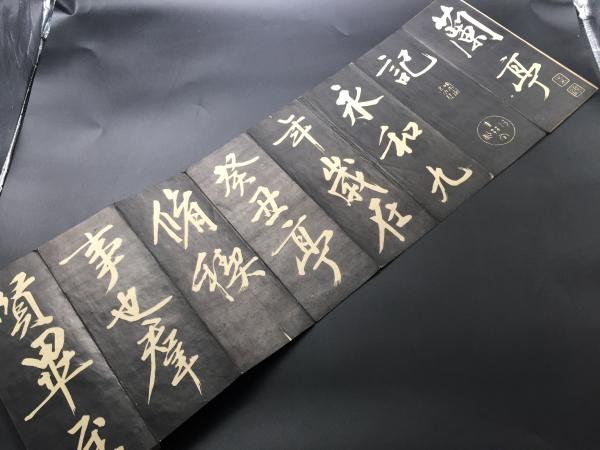 蘭亭
記
永和九
年歲在
癸丑亭
脩稧
事也羣
賢畢至